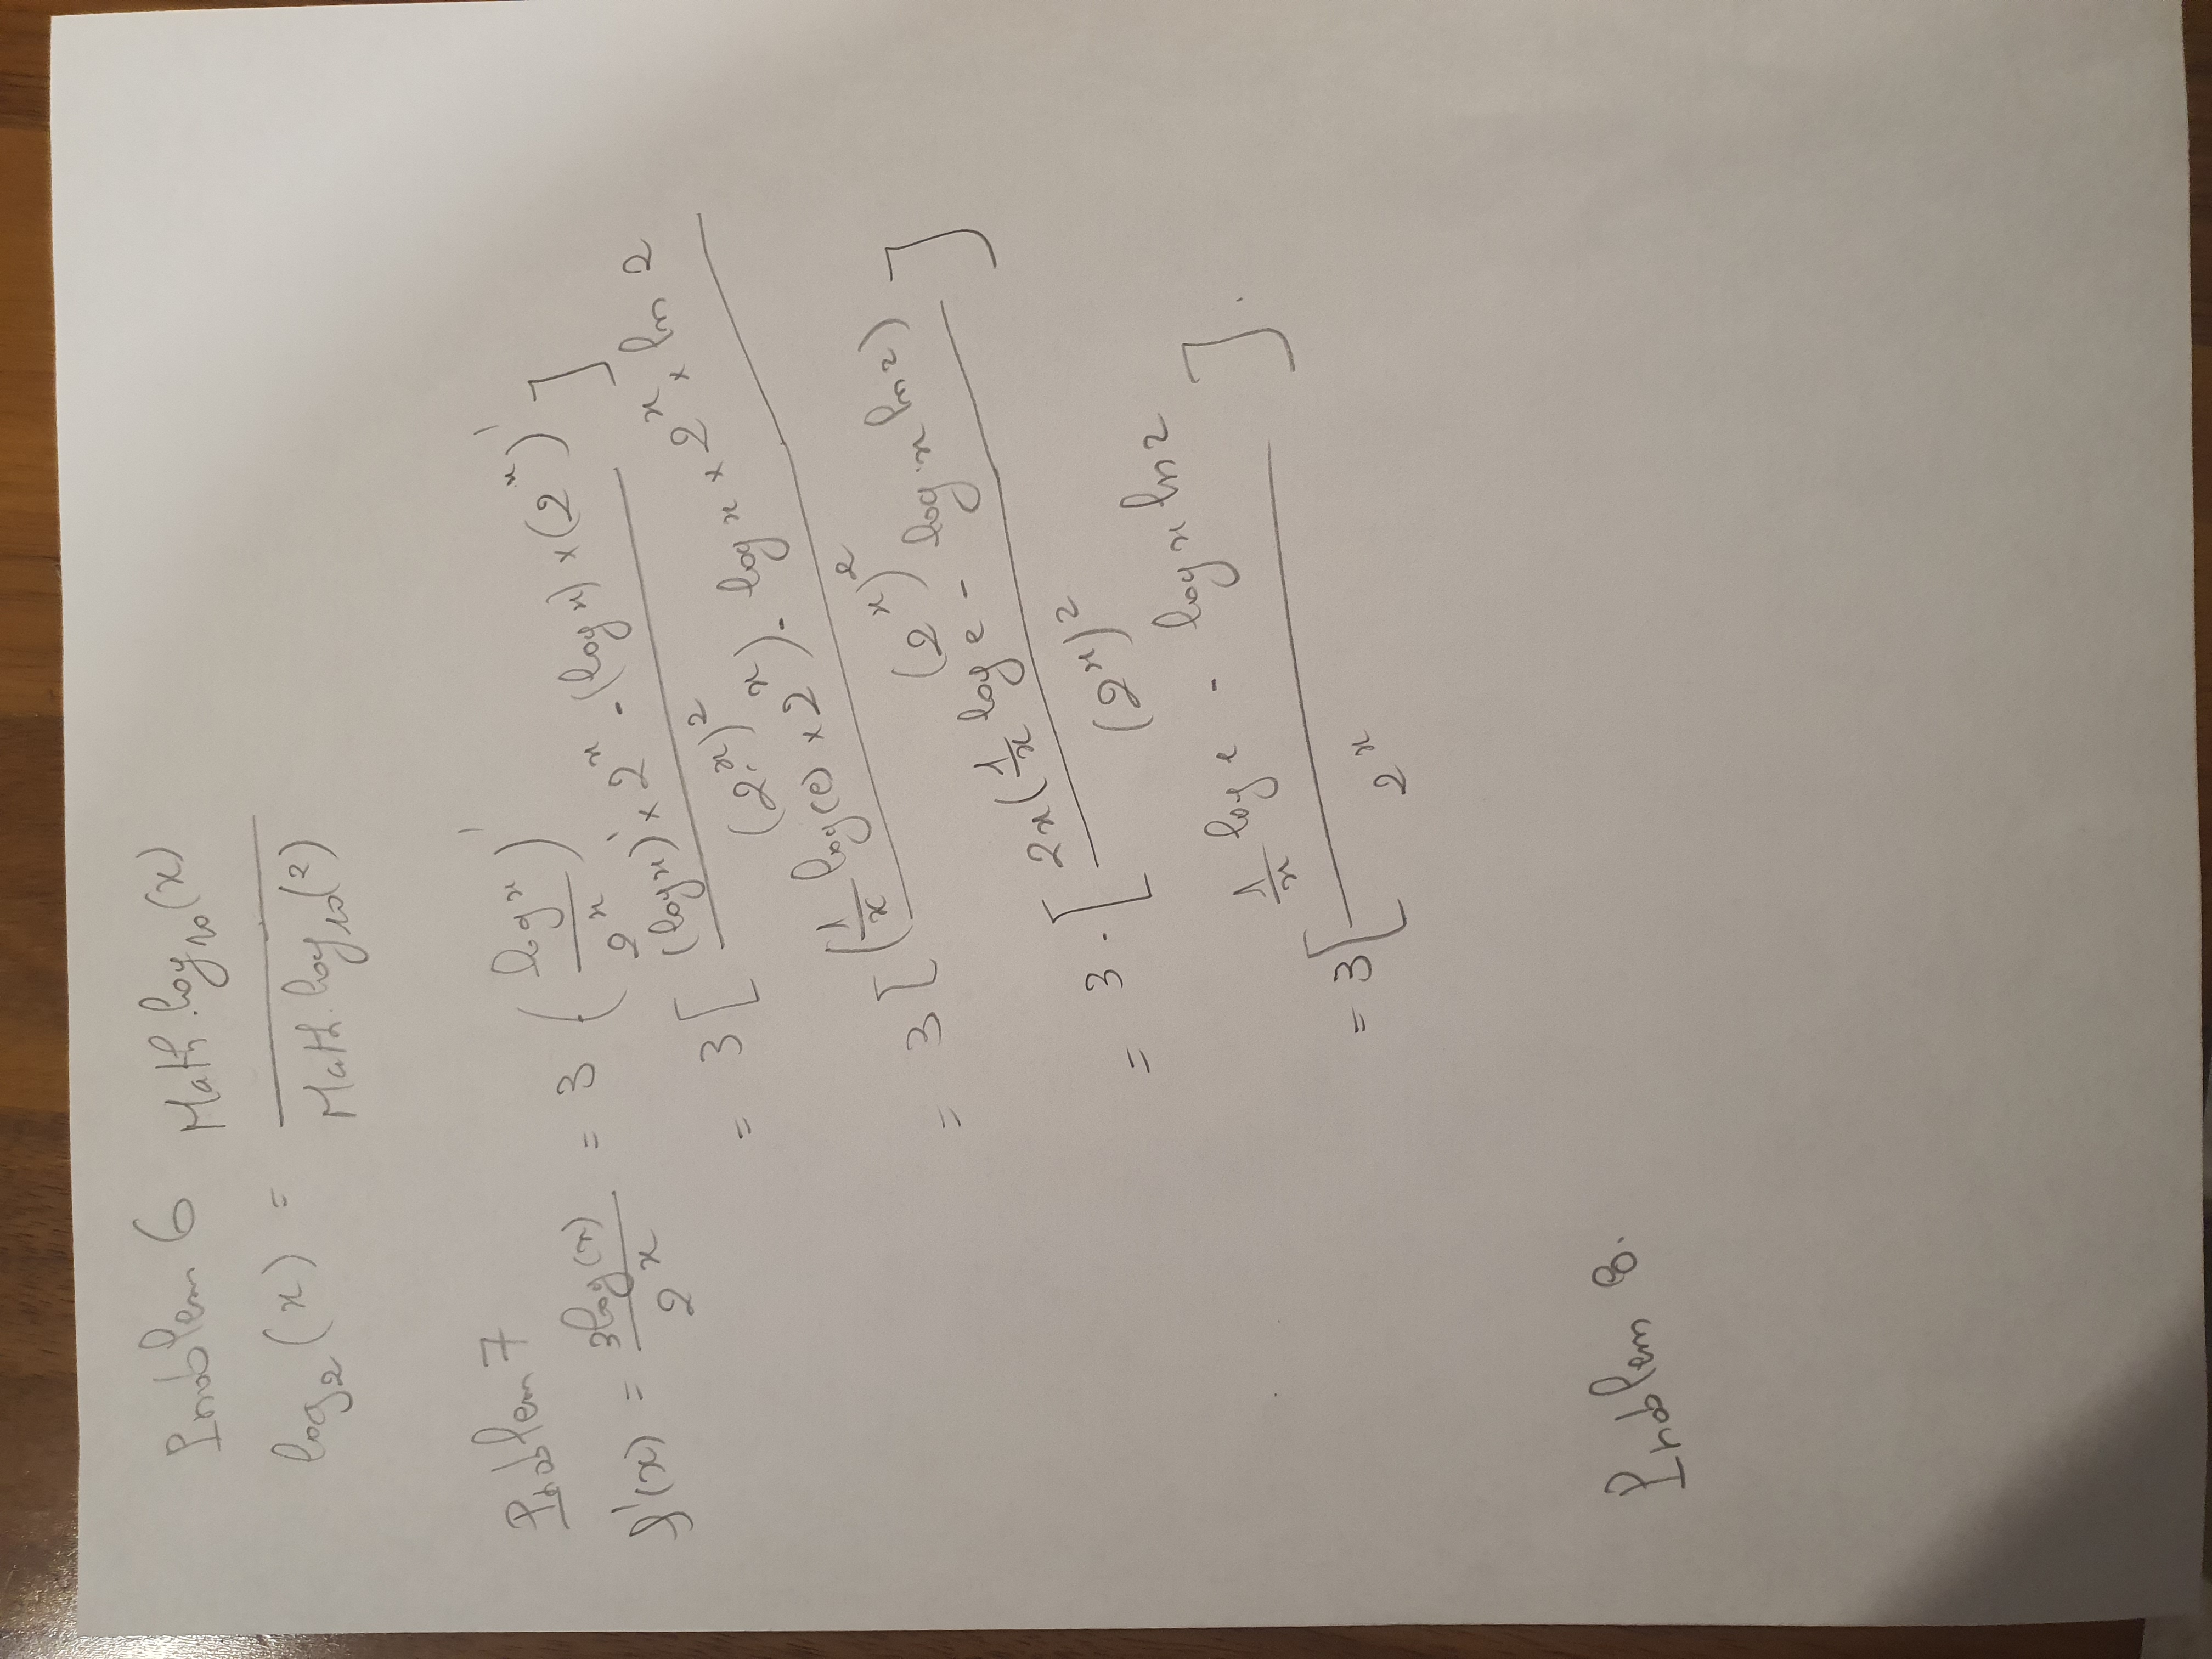 Problem 6
log₂(x) = Math.log₁₀(x) / Math.log₁₀(2)
Problem 7
f'(x) = 3log(x) / 2^x = 3 · (log x / 2^x)'
= 3 [ ((log x)' × 2^x - (log x) × (2^x)') / (2^x)² ]
= 3 [ ((1/x log(e) × 2^x) - log x × 2^x × ln 2) / (2^x)²
= 3 · [ 2x(1/x log e - log x ln 2) / (2^x)² ]
= 3 [ (1/x log e - log x ln 2) / 2^x ].
Problem 8.